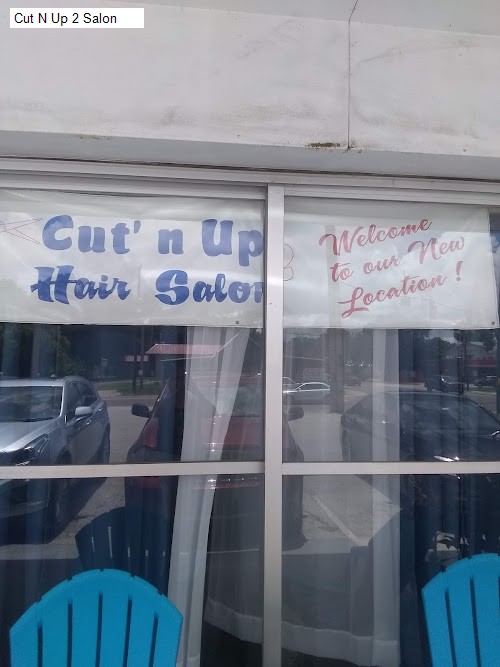 Cut N Up 2 Salon
Cut' n Up
Hair Salon
Welcome
to our New
Location !